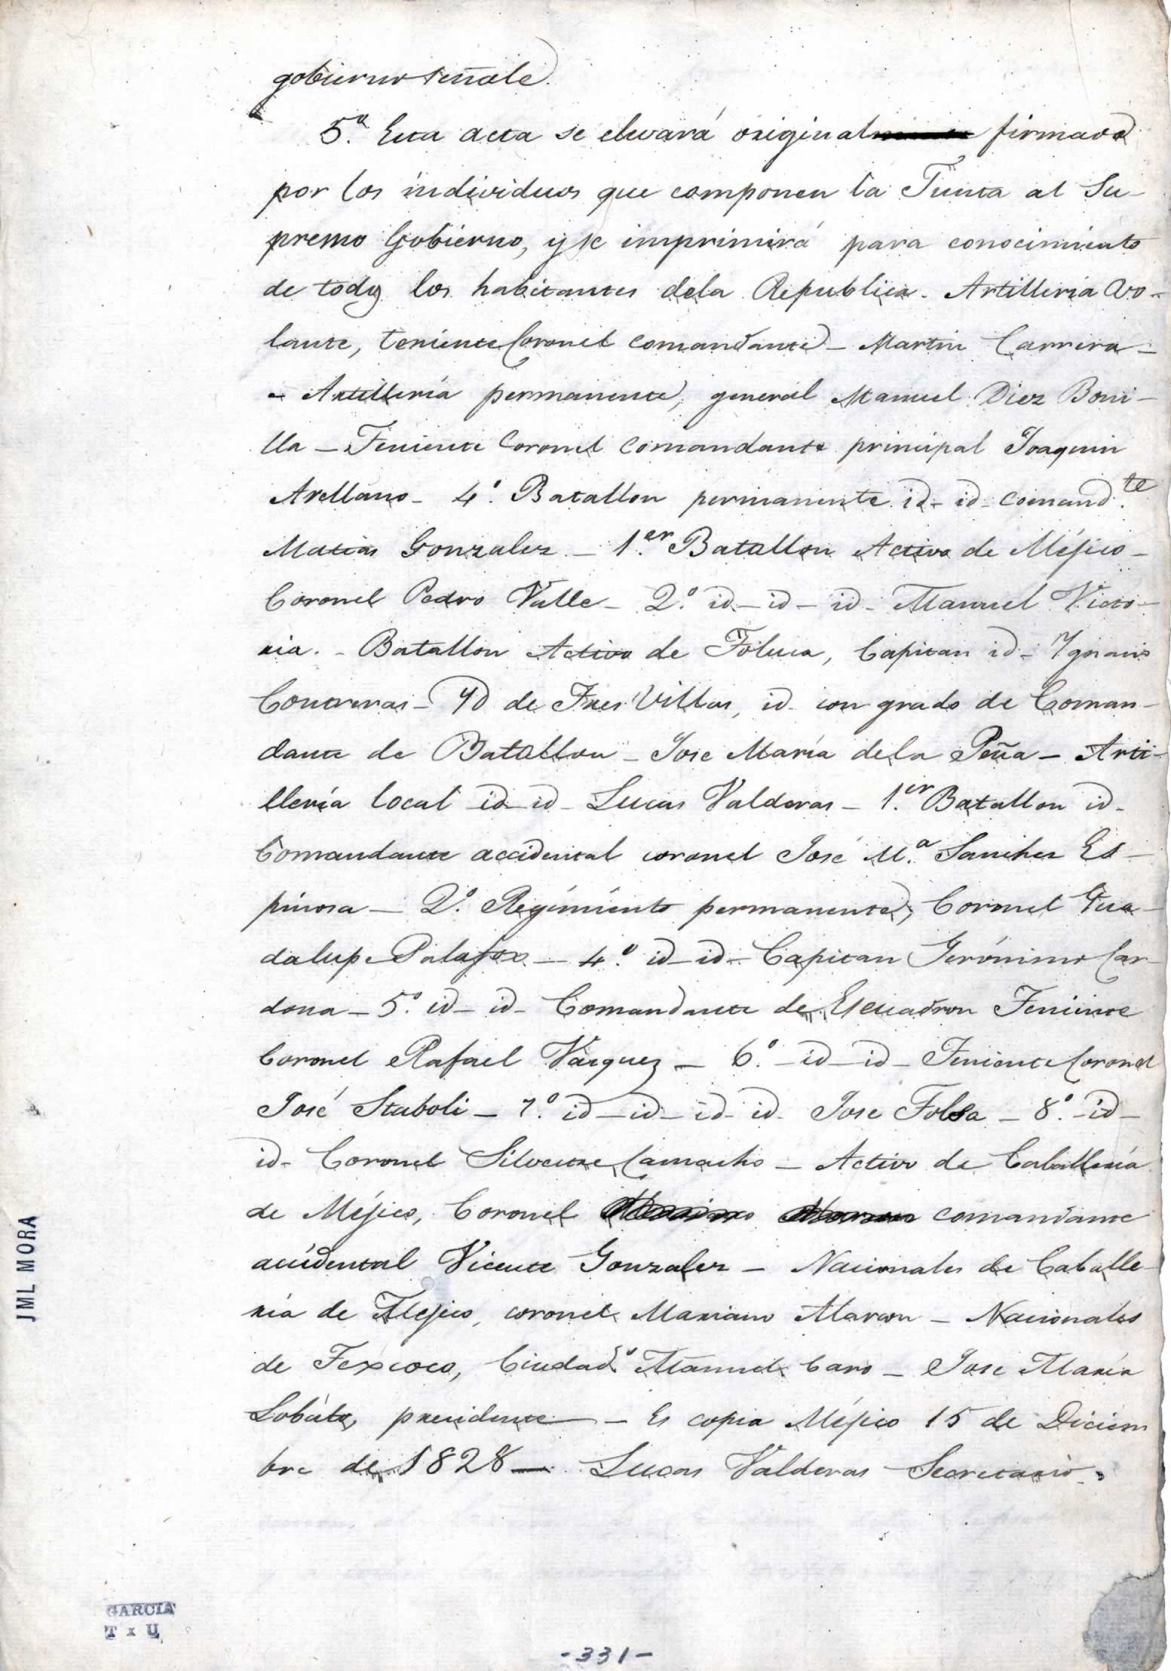 gobierno señale.
5ª. Esta acta se elevará original firmada
por los individuos que componen la Junta al Su-
premo Gobierno, y se imprimirá para conocimiento
de todos los habitantes dela Republica. Artilleria Vo-
lante, teniente Coronel comandante - Martin Carrera -
- Artillería permanente, general Manuel Diez Boni-
lla - Teniente Coronel Comandante principal Joaquin
Arellano - 4º. Batallon permanente id - id - comand.te
Matias Gonzalez - 1.er Batallon Activo de Méjico -
Coronel Pedro Valle - 2º. id - id - id - Manuel Victo-
ria. - Batallon Activo de Toluca, Capitan id - Ygnacio
Contreras - Yd de Tres Villas, id con grado de Coman-
dante de Batallon - Jose María dela Peña - Arti-
llería local id id - Lucas Valderas - 1.er Batallon id -
Comandante accidental coronel José M.ª Sanchez Es-
pinosa - 2º. Regimiento permanente, Coronel Gua-
dalupe Palafox - 4º id - id - Capitan Gerónimo Car-
dona - 5º id - id - Comandante de Escuadron Teniente
Coronel Rafael Vazquez - 6º - id - id - Teniente Coronel
José Staboli - 7º. id - id - id - id. Jose Folsa - 8º. - id -
id - Coronel Silvestre Camacho - Activo de Caballería
de Méjico, Coronel comandante
accidental Vicente Gonzalez - Nacionales de Caballe-
ria de Mejico, coronel Mariano Alarcon - Nacionales
de Texcoco, Ciudad.º Manuel Caro - Jose María
Lobato, presidente - Es copia Méjico 15 de Diciem
bre de 1828 - Lucas Valderas Secretario.
JML MORA
GARCIA
T x U
-331-